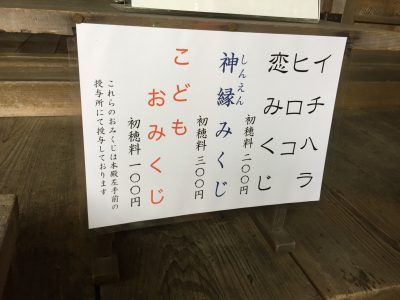 イチハラ
ヒロコ
恋みくじ
初穂料 二〇〇円
しんえん
神縁みくじ
初穂料 三〇〇円
こども
おみくじ
初穂料 一〇〇円
これらのおみくじは本殿左手前の
授与所にて授与しております